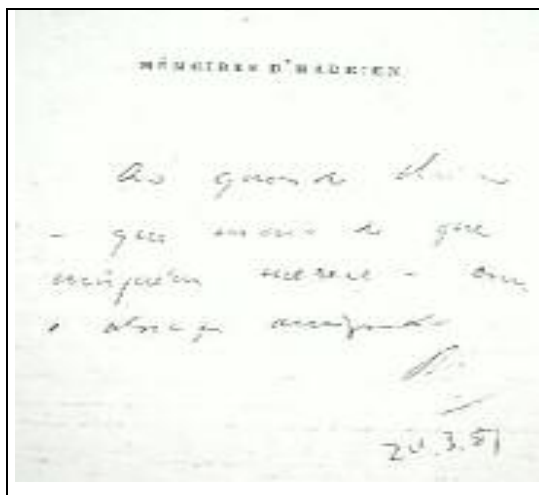 MÉMOIRES D'HADRIEN
Ao grande
- que mais do que
ninguém merece - com
o abraço amigo de